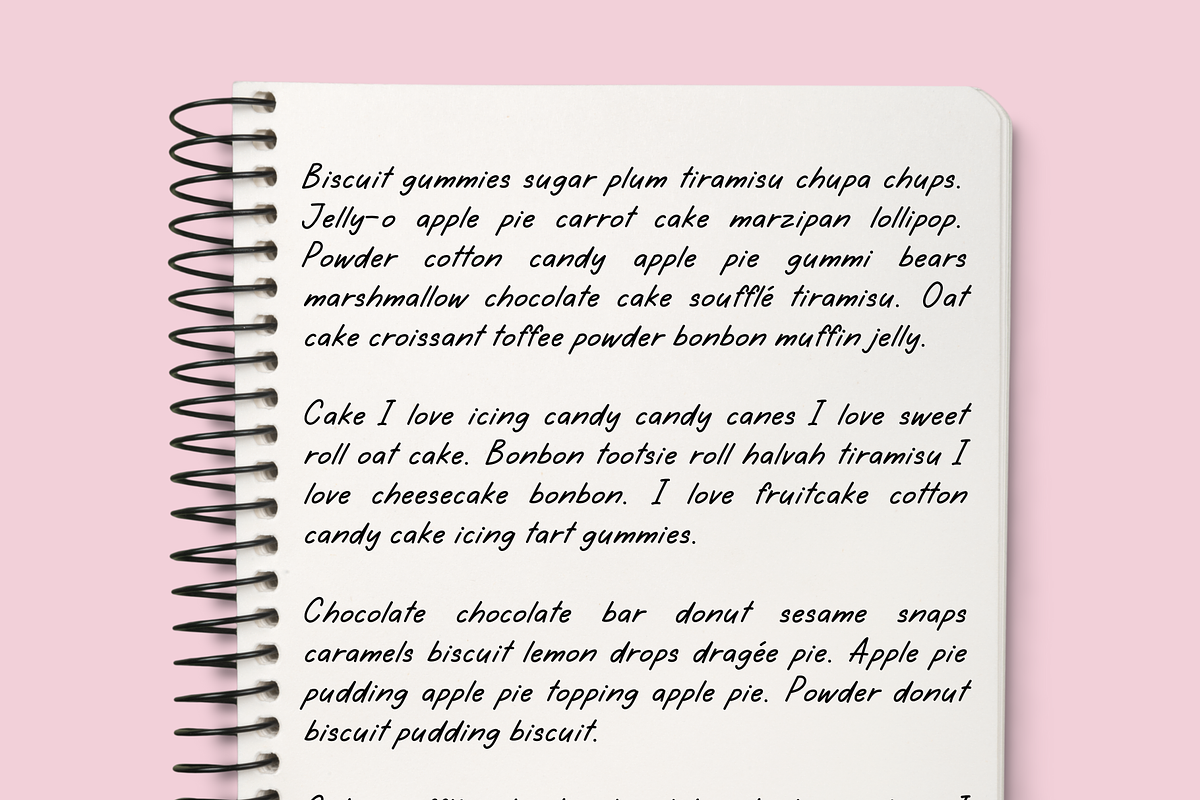 Biscuit gummies sugar plum tiramisu chupa chups.
Jelly-o apple pie carrot cake marzipan lollipop.
Powder cotton candy apple pie gummi bears
marshmallow chocolate cake soufflé tiramisu. Oat
cake croissant toffee powder bonbon muffin jelly.
Cake I love icing candy candy canes I love sweet
roll oat cake. Bonbon tootsie roll halvah tiramisu I
love cheesecake bonbon. I love fruitcake cotton
candy cake icing tart gummies.
Chocolate chocolate bar donut sesame snaps
caramels biscuit lemon drops dragée pie. Apple pie
pudding apple pie topping apple pie. Powder donut
biscuit pudding biscuit.